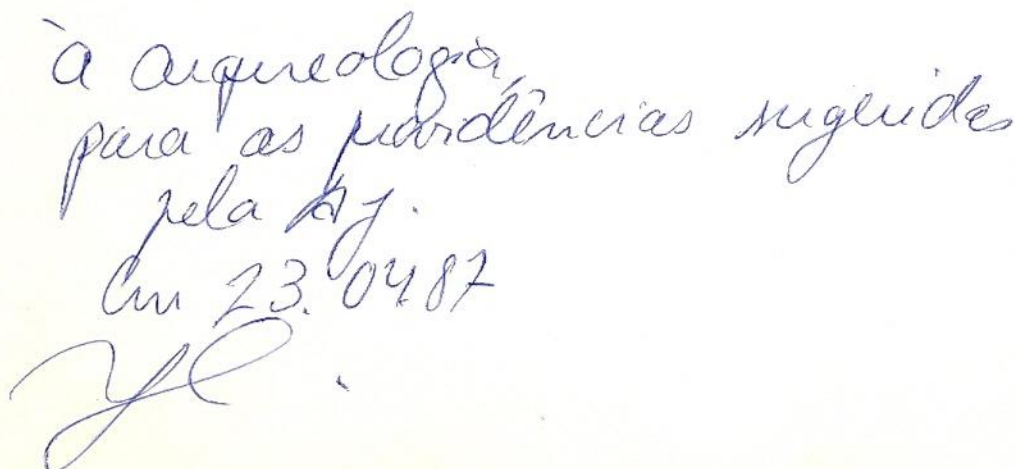 à arqueologia,
para as providências sugeridas
pela AJ.
Em 23.04.87